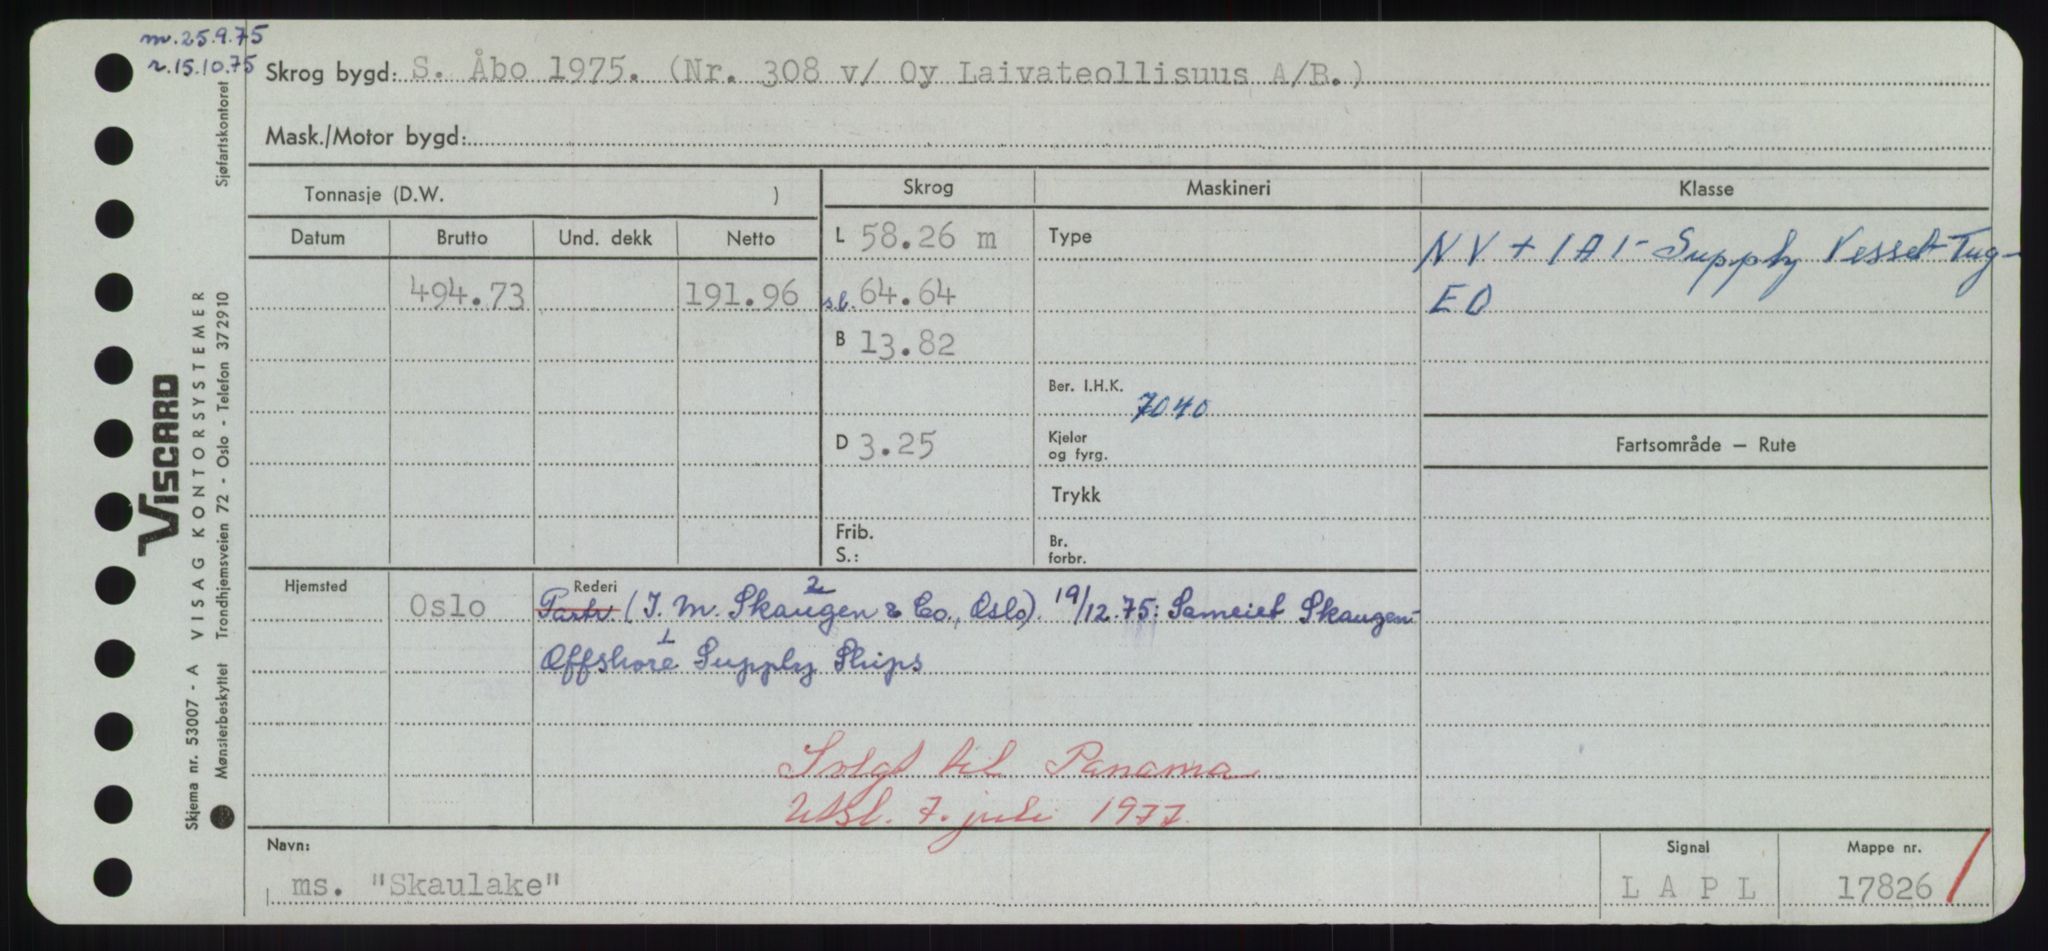 m. 25.9.75
r. 15.10.75
Skrog bygd: S. Åbo 1975. (Nr. 308 v/ Oy Laivateollisuus A/B.)
Mask./Motor bygd:
Tonnasje (D.W. )
Skrog
Maskineri
Klasse
Datum
Brutto
Und. dekk
Netto
L 58.26 m
Type
NV + 1A1 - Supply Vessel-Tug-
494.73
191.96
s.b. 64.64
E0
B 13.82
Ber. I.H.K.
7040
D 3.25
Kjeler
og fyrg.
Fartsområde – Rute
Trykk
Frib.
S.:
Br.
forbr.
Hjemsted
Oslo
Rederi
Partr (I. M. Skaugen & Co., Oslo). 19/12.75: Sameiet Skaugen-
2
1
Offshore Supply Ships
Solgt til Panama
Utsl. 7. juli 1977.
Navn:
ms. "Skaulake"
Signal
L A P L
Mappe nr.
17826
VISCARD
Skjema nr. 53007 - A VISAG KONTORSYSTEMER
Mønsterbeskyttet Trondhjemsveien 72 - Oslo - Telefon 372910
Sjøfartskontoret